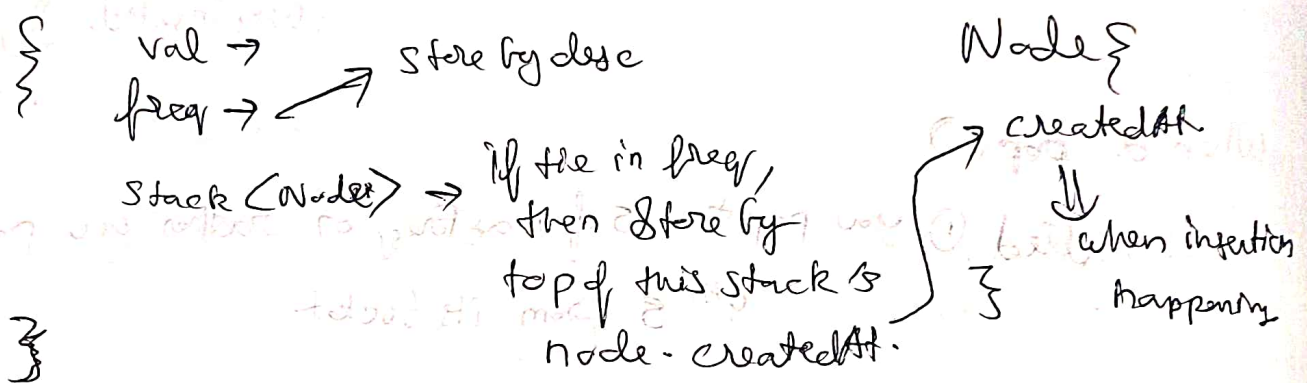 {
val →
freq → → store by desc
Stack <Node*> → if tie in freq,
then store by
top of this stack's
node.createdAt.
}
Node {
createdAt
⇓
when insertion
happening
}